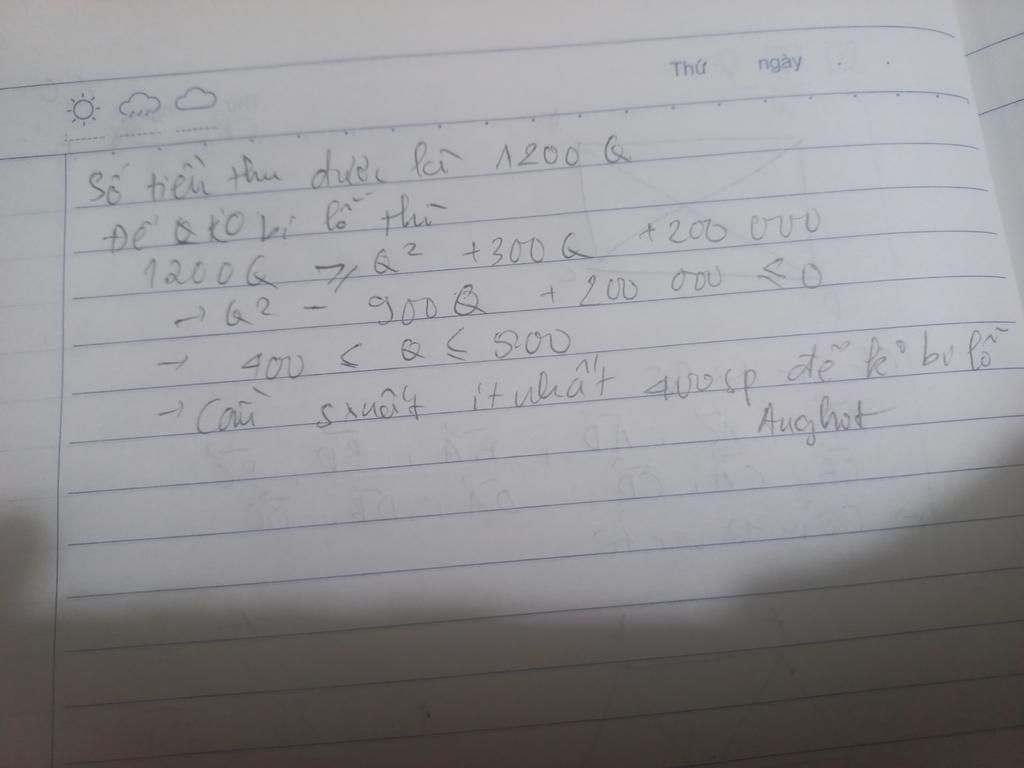 Thứ ngày . .
Số tiền thu được là 1200 Q
Để Q ko bị lỗ thì
1200Q ≥ Q² +300Q +200 000
→ Q² - 900Q + 200 000 ≤ 0
→ 400 ≤ Q ≤ 500
→ Cần sxuất ít nhất 400sp để k bị lỗ